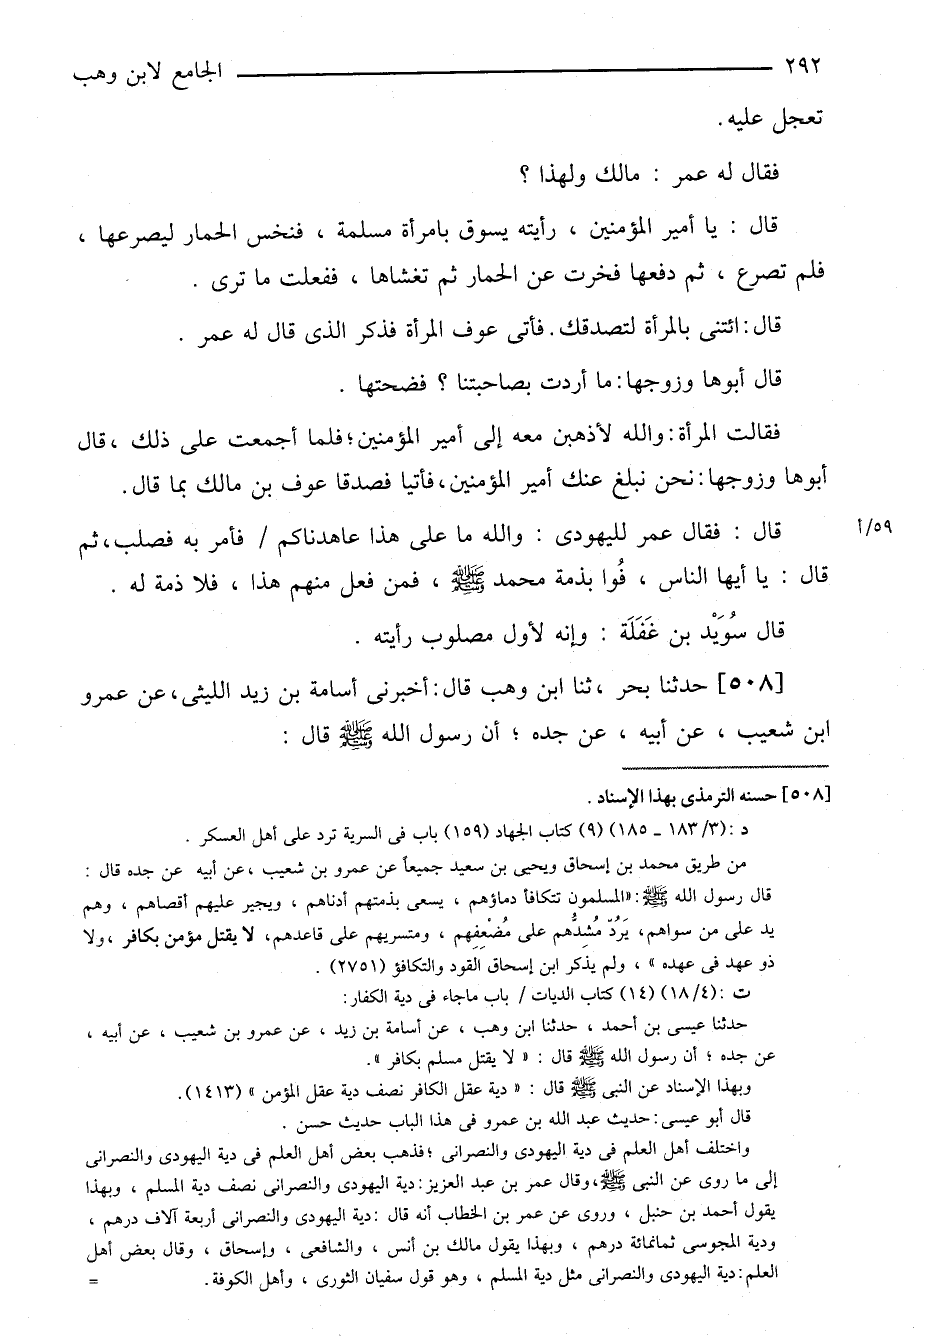 ٢٩٢ الجامع لابن وهب
تعجل عليه .
فقال له عمر : مالك ولهذا ؟
قال : يا أمير المؤمنين ، رأيته يسوق بامرأة مسلمة ، فنخس الحمار ليصرعها ،
فلم تصرع ، ثم دفعها فخرت عن الحمار ثم تغشاها ، ففعلت ما ترى .
قال : ائتنى بالمرأة لتصدقك . فأتى عوف المرأة فذكر الذى قال له عمر .
قال أبوها وزوجها : ما أردت بصاحبتنا ؟ فضحتها .
فقالت المرأة : والله لأذهبن معه إلى أمير المؤمنين ؛ فلما أجمعت على ذلك ، قال
أبوها وزوجها : نحن نبلغ عنك أمير المؤمنين ، فأتيا فصدقا عوف بن مالك بما قال .
قال : فقال عمر لليهودى : والله ما على هذا عاهدناكم / فأمر به فصلب ، ثم
٥٩/أ
قال : يا أيها الناس ، فُوا بذمة محمد ﷺ ، فمن فعل منهم هذا ، فلا ذمة له .
قال سُوَيْد بن غَفَلَة : وإنه لأول مصلوب رأيته .
[٥٠٨] حدثنا بحر ، ثنا ابن وهب قال : أخبرنى أسامة بن زيد الليثى ، عن عمرو
ابن شعيب ، عن أبيه ، عن جده ؛ أن رسول الله ﷺ قال :
[٥٠٨] حسنه الترمذى بهذا الإسناد .
د : (٣/ ١٨٣ ـ ١٨٥) (٩) كتاب الجهاد (١٥٩) باب فى السرية ترد على أهل العسكر .
من طريق محمد بن إسحاق ويحيى بن سعيد جميعاً عن عمرو بن شعيب ، عن أبيه عن جده قال :
قال رسول الله ﷺ : «المسلمون تتكافأ دماؤهم ، يسعى بذمتهم أدناهم ، ويجير عليهم أقصاهم ، وهم
يد على من سواهم ، يَرُدّ مُشِدُّهم على مُضْعِفِهم ، ومتسريهم على قاعدهم ، لا يقتل مؤمن بكافر ، ولا
ذو عهد فى عهده » ، ولم يذكر ابن إسحاق القود والتكافؤ (٢٧٥١) .
ت : (٤/ ١٨) (١٤) كتاب الديات / باب ماجاء فى دية الكفار :
حدثنا عيسى بن أحمد ، حدثنا ابن وهب ، عن أسامة بن زيد ، عن عمرو بن شعيب ، عن أبيه ،
عن جده ؛ أن رسول الله ﷺ قال : « لا يقتل مسلم بكافر » .
وبهذا الإسناد عن النبى ﷺ قال : « دية عقل الكافر نصف دية عقل المؤمن » (١٤١٣) .
قال أبو عيسى : حديث عبد الله بن عمرو فى هذا الباب حديث حسن .
واختلف أهل العلم فى دية اليهودى والنصرانى ؛ فذهب بعض أهل العلم فى دية اليهودى والنصرانى
إلى ما روى عن النبى ﷺ ، وقال عمر بن عبد العزيز : دية اليهودى والنصرانى نصف دية المسلم ، وبهذا
يقول أحمد بن حنبل ، وروى عن عمر بن الخطاب أنه قال : دية اليهودى والنصرانى أربعة آلاف درهم ،
ودية المجوسى ثمانمائة درهم ، وبهذا يقول مالك بن أنس ، والشافعى ، وإسحاق ، وقال بعض أهل
العلم : دية اليهودى والنصرانى مثل دية المسلم ، وهو قول سفيان الثورى ، وأهل الكوفة . =